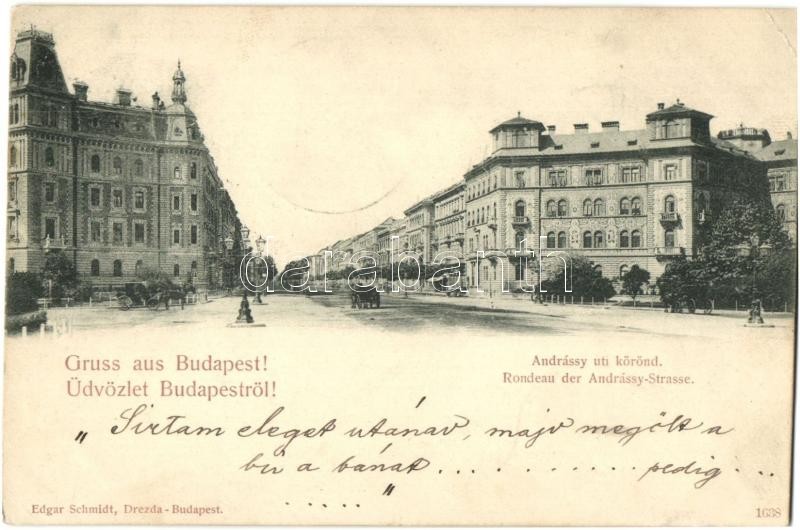 darabanth.com
Gruss aus Budapest!
Üdvözlet Budapestről!
Andrássy uti körönd.
Rondeau der Andrássy-Strasse.
„ Sirtam eleget utánad, majd megölt a
bú a bánat.................. pedig ...
.....“
Edgar Schmidt, Drezda-Budapest.
1638